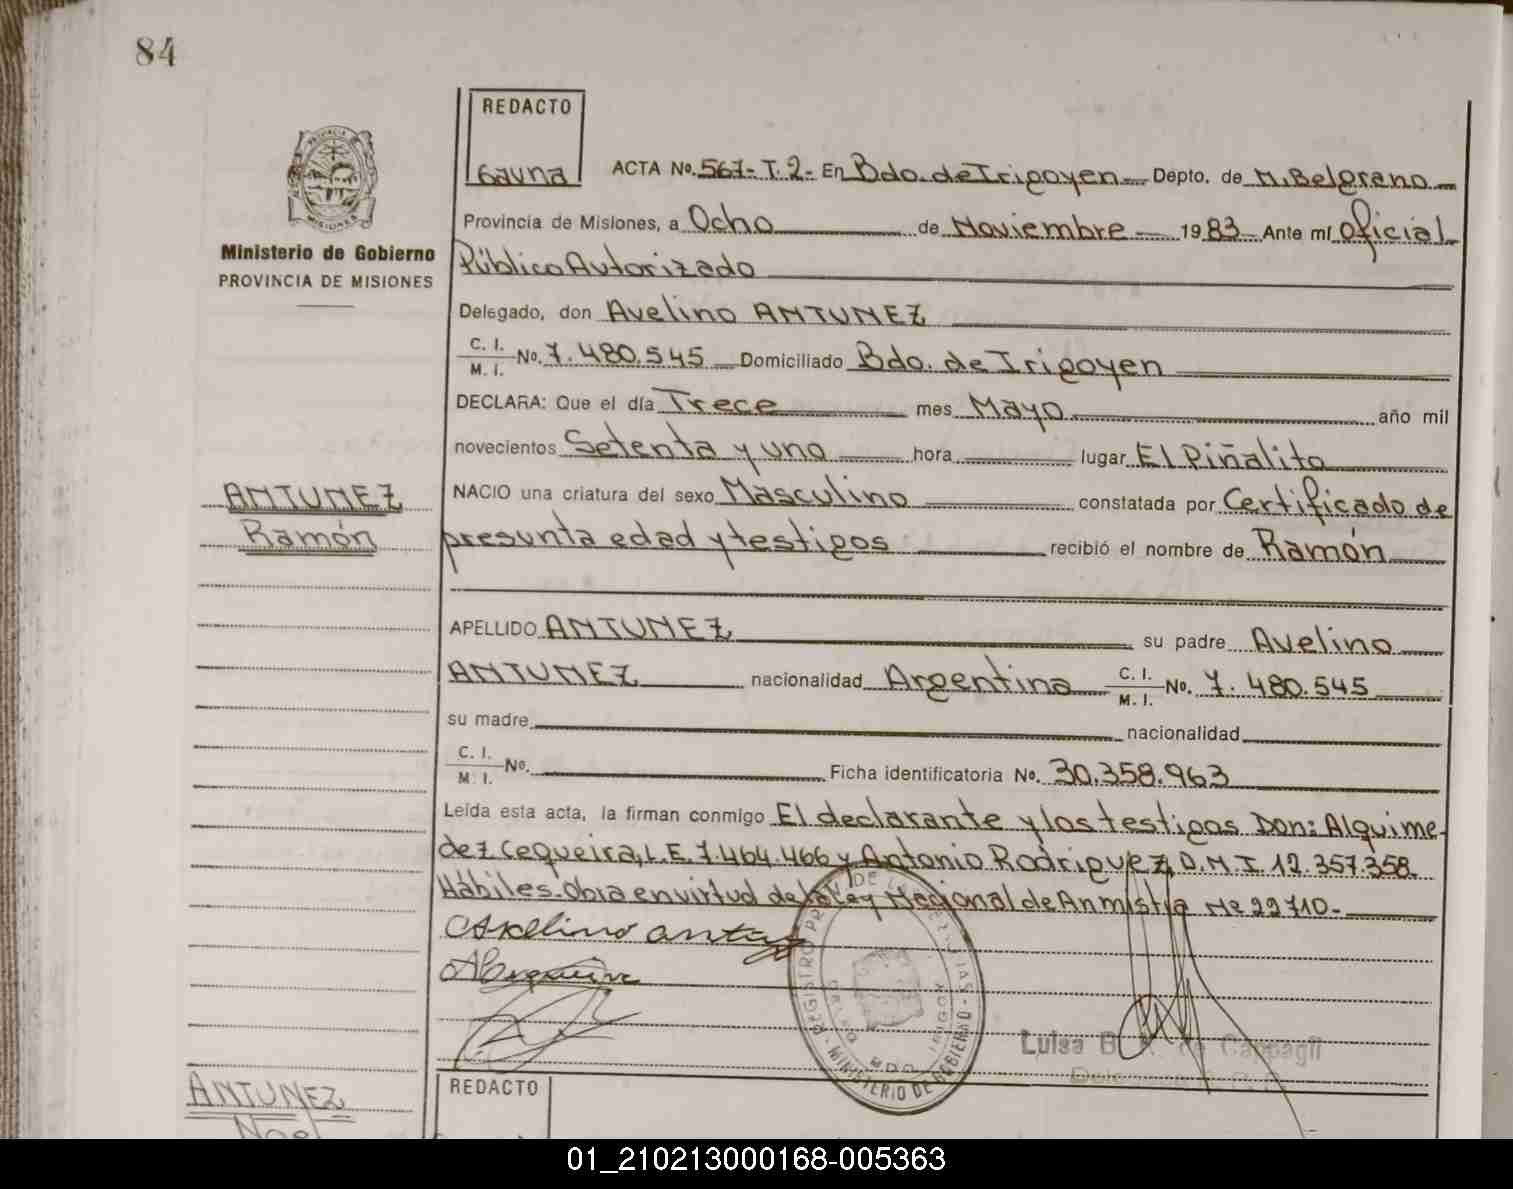 84
REDACTO
Gauna
PROVINCIA
MISIONES
Ministerio de Gobierno
PROVINCIA DE MISIONES
ACTA No. 567- T. 2- En Bdo. de Irigoyen Depto. de M. Belgrano
Provincia de Misiones, a Ocho de Noviembre 1983 Ante mí Oficial
Público Autorizado
Delegado, don Avelino ANTUNEZ
C. I. / M. I. No. 7.480.545 Domiciliado Bdo. de Irigoyen
DECLARA: Que el día Trece mes Mayo año mil
novecientos Setenta y uno hora lugar El Piñalito
NACIO una criatura del sexo Masculino constatada por Certificado de
ANTUNEZ
Ramón
presunta edad y testigos recibió el nombre de Ramón
APELLIDO ANTUNEZ su padre Avelino
ANTUNEZ nacionalidad Argentina C. I. / M. I. No. 7.480.545
su madre nacionalidad
C. I. / M. I. No. Ficha identificatoria No. 30.358.963
Leída esta acta, la firman conmigo El declarante y los testigos Don: Alquime-
dez Cequeira, L.E. 7.464.466 y Antonio Rodriguez, D.M.I. 12.357.358.
Hábiles. Obra en virtud de la Ley Nacional de Anmistia Nº 22710-
MINISTERIO DE GOBIERNO
Luisa B.
REDACTO
ANTUNEZ
Noel
01_210213000168-005363